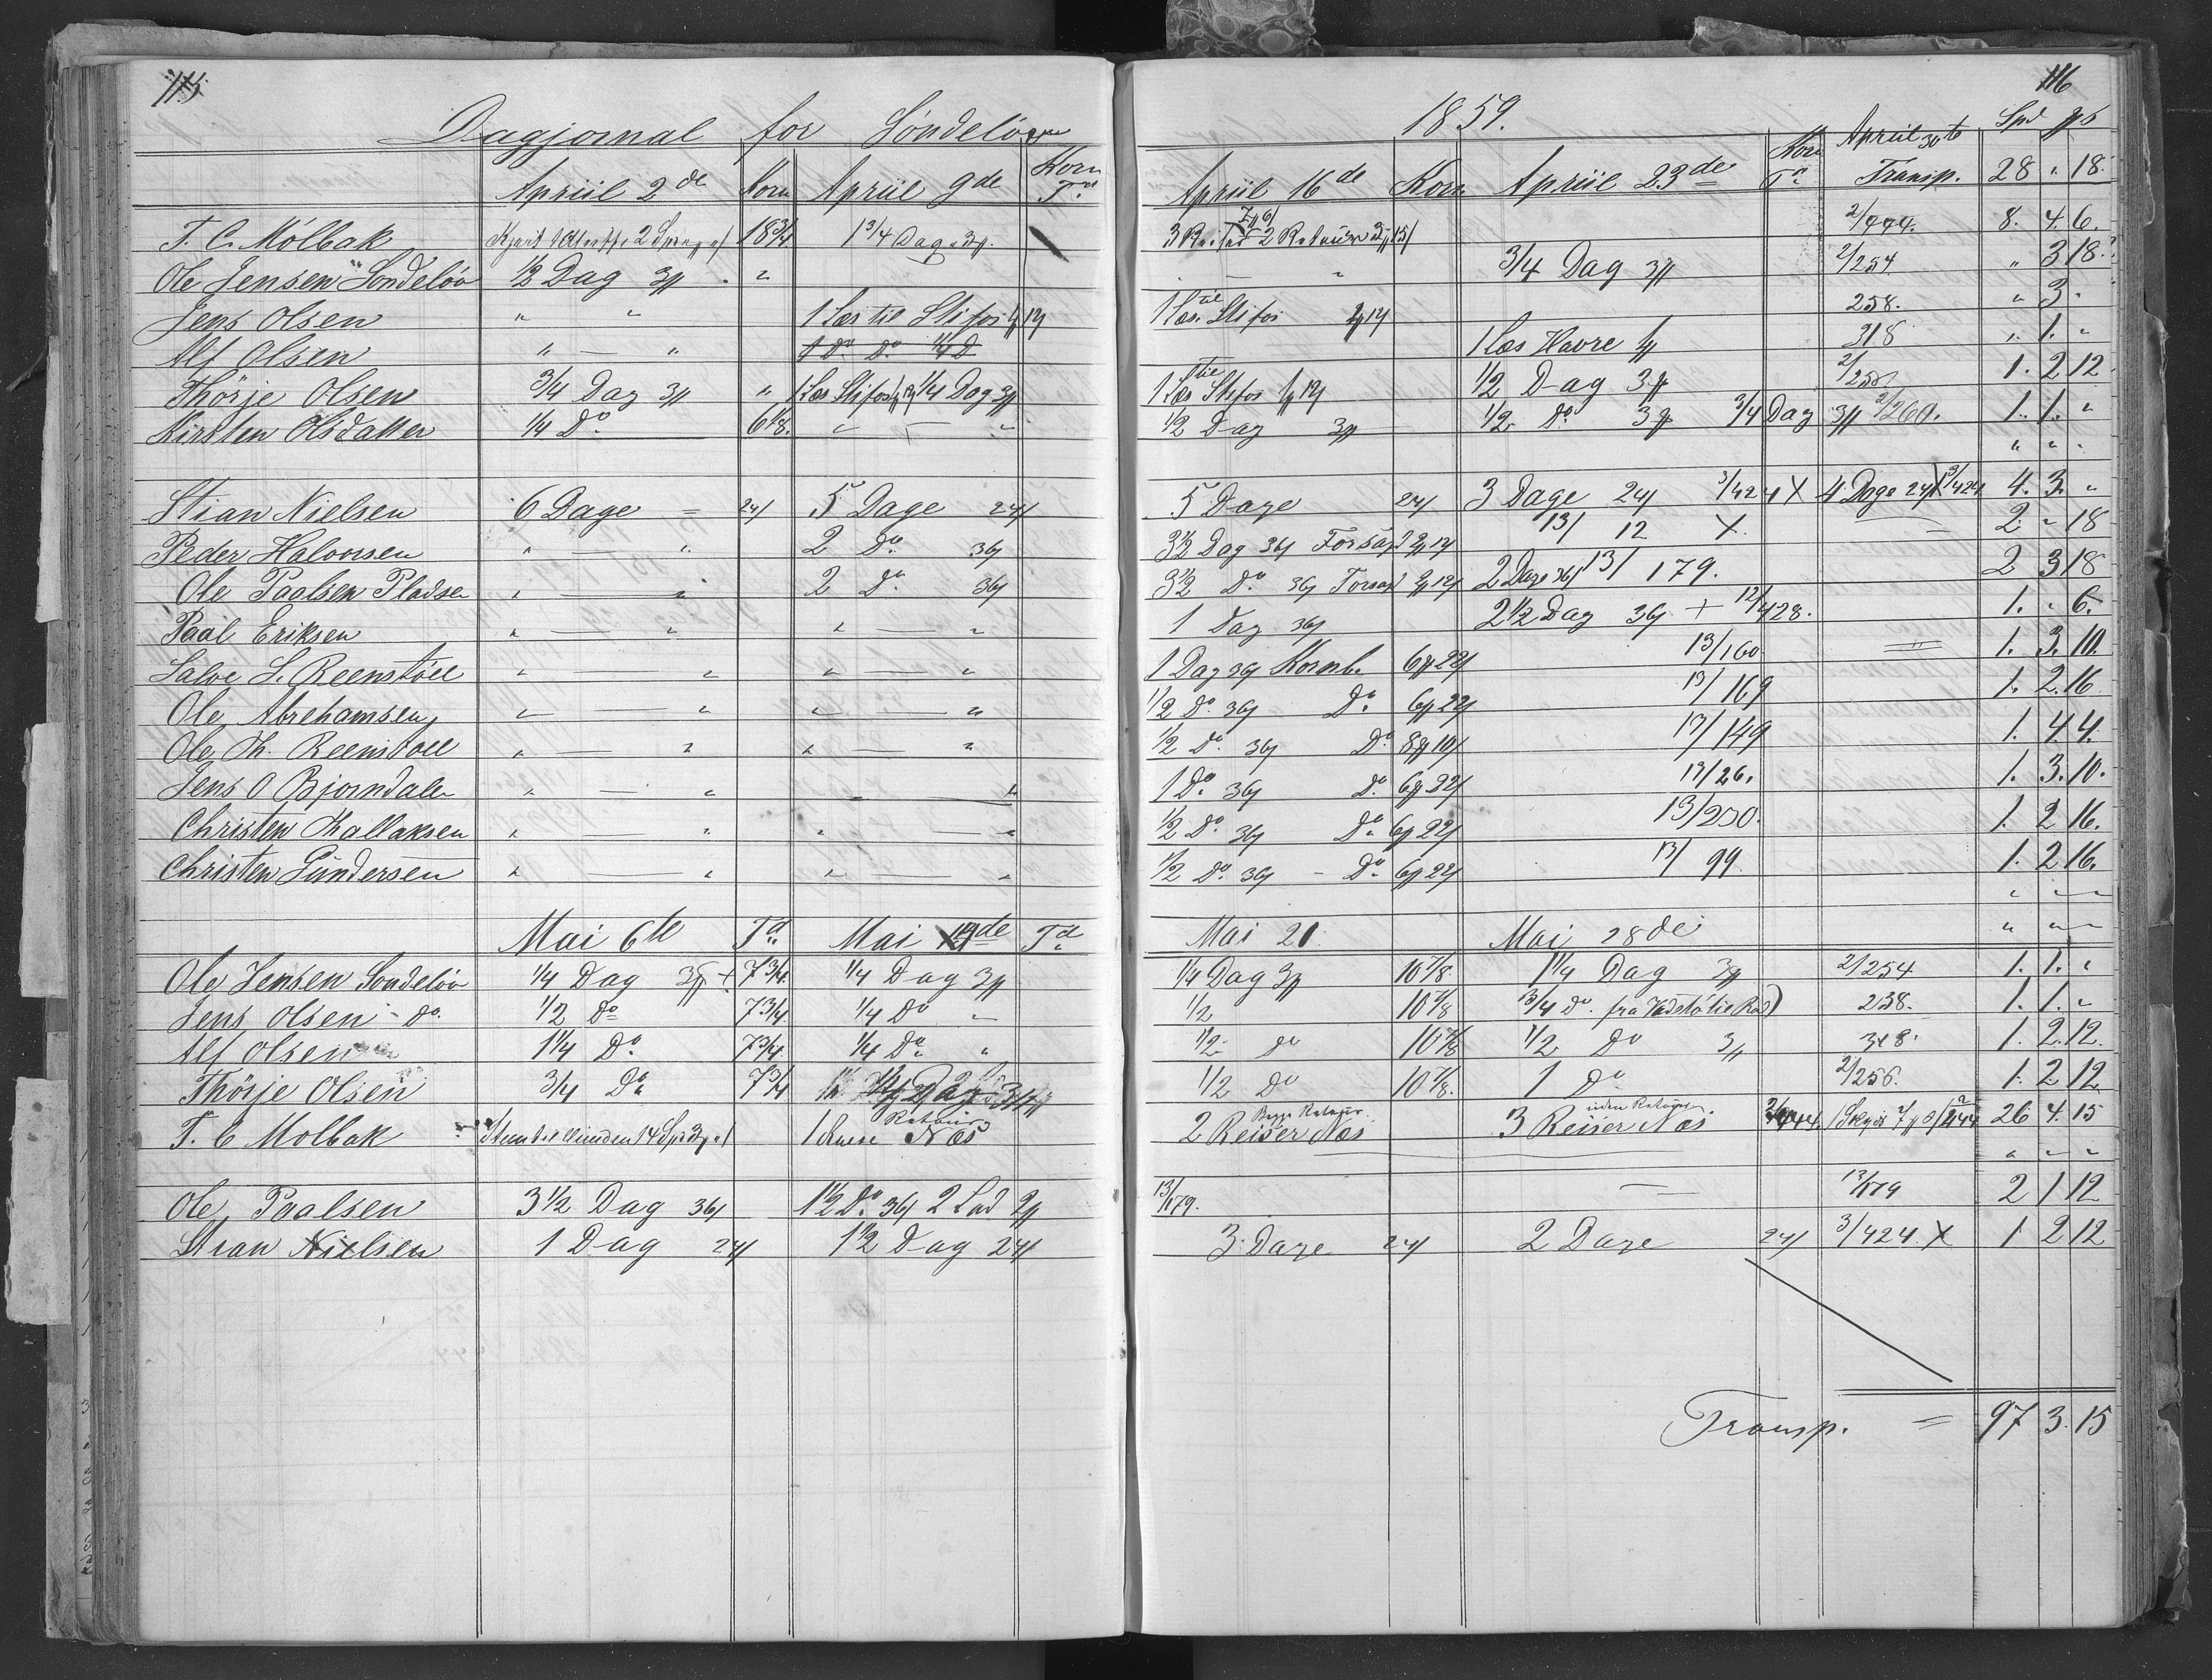 115 116
Dagjornal for Søndeløv 1859.
Apriil 2de Korn Apriil 9de Korn Td Apriil 16de Korn Apriil 23de Korn Td Apriil 30te Transp. Spd 28 " 18.
T. C. Mölbak 18 3/4 1 3/4 Dag 2/444. 8. 4. 6.
Ole Jensen Sondelöv 1/2 Dag " " 3/4 Dag 2/254 " 3 18.
Jens Olsen " " 1 Læs til Stifos 1 Læs til Stifos 258. " 3 "
Alf Olsen " — " 1 Do Do 1/4 D 1 Læs Havre 318 " 1. "
Thörje Olsen 3/4 Dag " 1 Læs Stifos 1/4 Dag 1 Læs til Stifos 1/2 Dag 1. 2 12
Kirsten Olsdatter 1/4 Do 6 1/8. " — " 1/2 Dag 1/2 Do 3/4 Dag 2/260. 1. 1. "
" " "
Stian Nielsen 6 Dage = 24 5 Dage 24 5 Dage 24 3 Dage 24 3/424 X 4 Dage 24 X 3/424 4. 3. "
Peder Halvorsen " — " 2 Do 36 3 1/2 Dag 36 13/ 12 X — 2. " 18
Ole Paalsen Pladsen " — " 2 Do 36 3 1/2 Do 36 2 Dage 36 13/179. 2 3 18
Paal Eriksen " — " " — " 1 Dag 36 2 1/2 Dag 36 + 12/428. 1. " 6.
Salve S. Reenstöll " — " " — " 1 Dag 36 Kornb. 6 22 13/160 = 1. 3. 10.
Ole Abrehamsen " — " " — " 1/2 Do 36 Do 6 22 13/169 1. 2. 16.
Ole Th. Reenstoll " — " " — " 1/2 Do 36 Do 8 10 13/149 1. 4. 4.
Jens O Bjorndalen " — " " — " 1 Do 36 Do 6 22 13/26. 1. 3. 10.
Christen Thallaksen " — " " — " 1/2 Do 36 Do 6 22 13/250. 1. 2 16.
Christen Gundersen " — " " — " 1/2 Do 36 — Do 6 22 13/99. 1. 2 16.
" " "
Mai 6te Td Mai Td Mai 21 Mai 28de " " "
Ole Jensen Sondelöv 1/4 Dag + 7 3/4 1/4 Dag 1/4 Dag 10 7/8. 1 1/4 Dag 2/254 1. 1. "
Jens Olsen - Do 1/2 Do 7 3/4 1/4 Do " 1/2 10 7/8 3/4 Do fra 258. 1. 1. "
Alf Olsen 1 1/4 Do 7 3/4 1/4 Do " 1/2 Do 10 7/8 1/2 Do 318. 1. 2. 12.
Thörje Olsen 3/4 Do 7 3/4 1/2 Do 10 7/8. 1 Do 2/256. 1. 2 12
T. C Molbak 1 Næs 2 Reiser Næs 3 Reiser Næs uden Retour. 26 4. 15
" " "
Ole Paalsen 3 1/2 Dag 36 1 1/2 Do 36 2 Lad 13/179. — 13/179 2 1 12
Stian Nielsen 1 Dag 24 1 1/2 Dag 24 3 Dage 24 2 Dage 24 3/424 X 1 2 12
Transp. = 97 3. 15